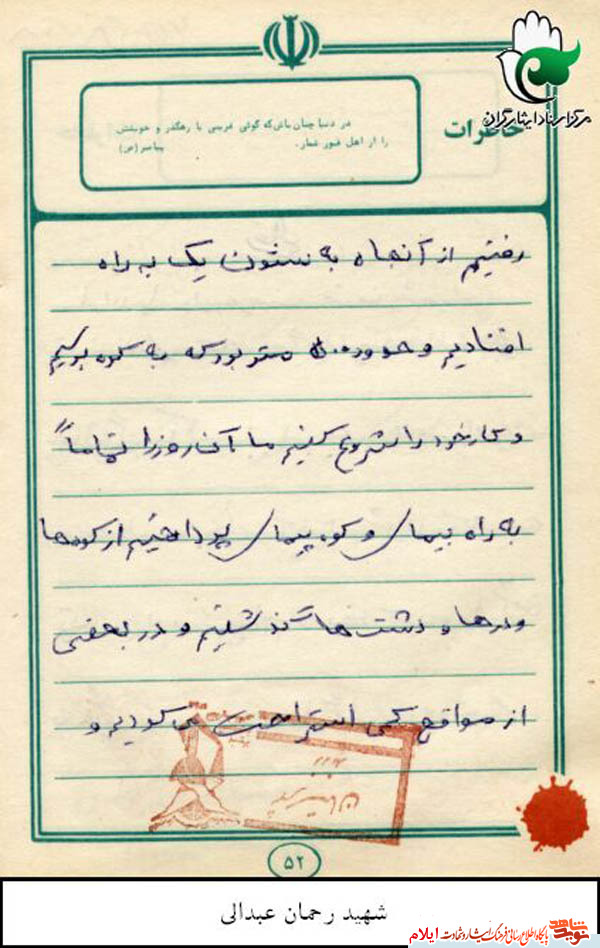 مرکز اسناد ایثارگران
خاطرات
در دنیا چنان باش که گوئی غریبی یا رهگذر و خویشتن
را از اهل قبور شمار.
پیامبر (ص)
رفتیم از آنجا به ستون یک به راه
افتادیم و حدود متر بود که به کوه برسیم
و کار خود را شروع کنیم ما آن روز را تماماً
به راه پیمای و کوه پیمای پرداختیم از کوه‌ها
و درها و دشت ها گذشتیم و در بعضی
از مواقع کمی استراحت می کردیم و
۵۲
شهید رحمان عبدالی
نوید شاهد
پایگاه اطلاع رسانی فرهنگ ایثار و شهادت ایلام